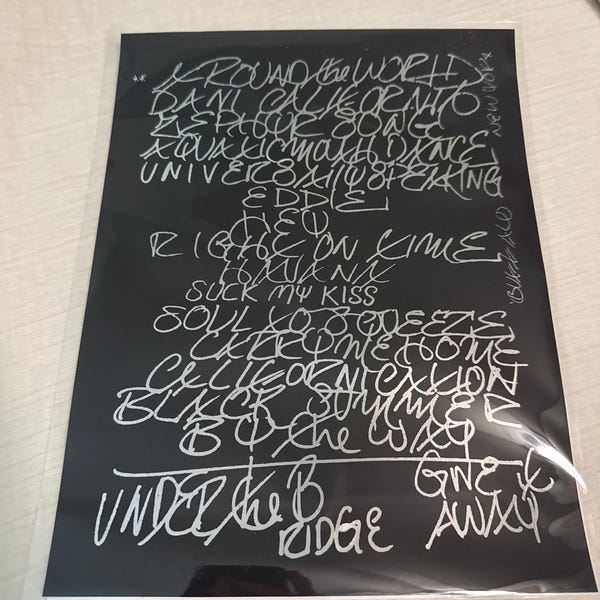 AROUND the WORLD
DANI CALIFORNIA
ZEPHYR SONG
AQUATIC MOUTH DANCE
UNIVERSALLY SPEAKING
EDDIE
HEY
RIGHT ON TIME
HAVANA
SUCK MY KISS
SOUL TO SQUEEZE
CARRY ME HOME
CALIFORNICATION
BLACK SUMMER
BY the WAY
UNDER the B
RIDGE
GIVE IT
AWAY
NEW YORK
BUFFALO